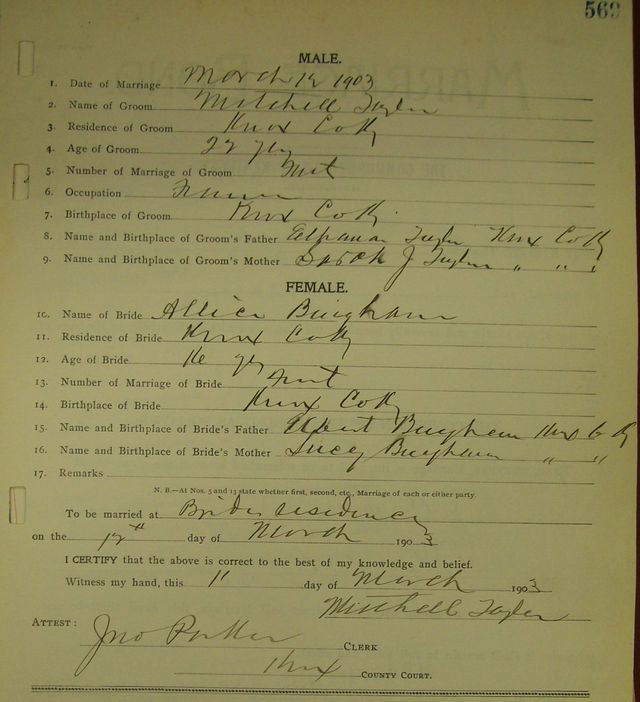 569
MALE.
1. Date of Marriage March 12 1903
2. Name of Groom Mitchell Taylor
3. Residence of Groom Knox Co Ky
4. Age of Groom 22 yrs
5. Number of Marriage of Groom First
6. Occupation Farmer
7. Birthplace of Groom Knox Co Ky.
8. Name and Birthplace of Groom's Father Taylor Knox Co Ky
9. Name and Birthplace of Groom's Mother Sarah J Taylor " " "
FEMALE.
10. Name of Bride Allice Bingham
11. Residence of Bride Knox Co Ky
12. Age of Bride 16 yrs
13. Number of Marriage of Bride First
14. Birthplace of Bride Knox Co Ky
15. Name and Birthplace of Bride's Father Elbert Bingham Knox Co Ky
16. Name and Birthplace of Bride's Mother Lucy Bingham " "
17. Remarks
N. B.—At Nos. 5 and 13 state whether first, second, etc., Marriage of each or either party.
To be married at Brides residence
on the 12th day of March 1903
I CERTIFY that the above is correct to the best of my knowledge and belief.
Witness my hand, this 11 day of March 1903
Mitchell Taylor
ATTEST: Jno Parker CLERK
Knox COUNTY COURT.